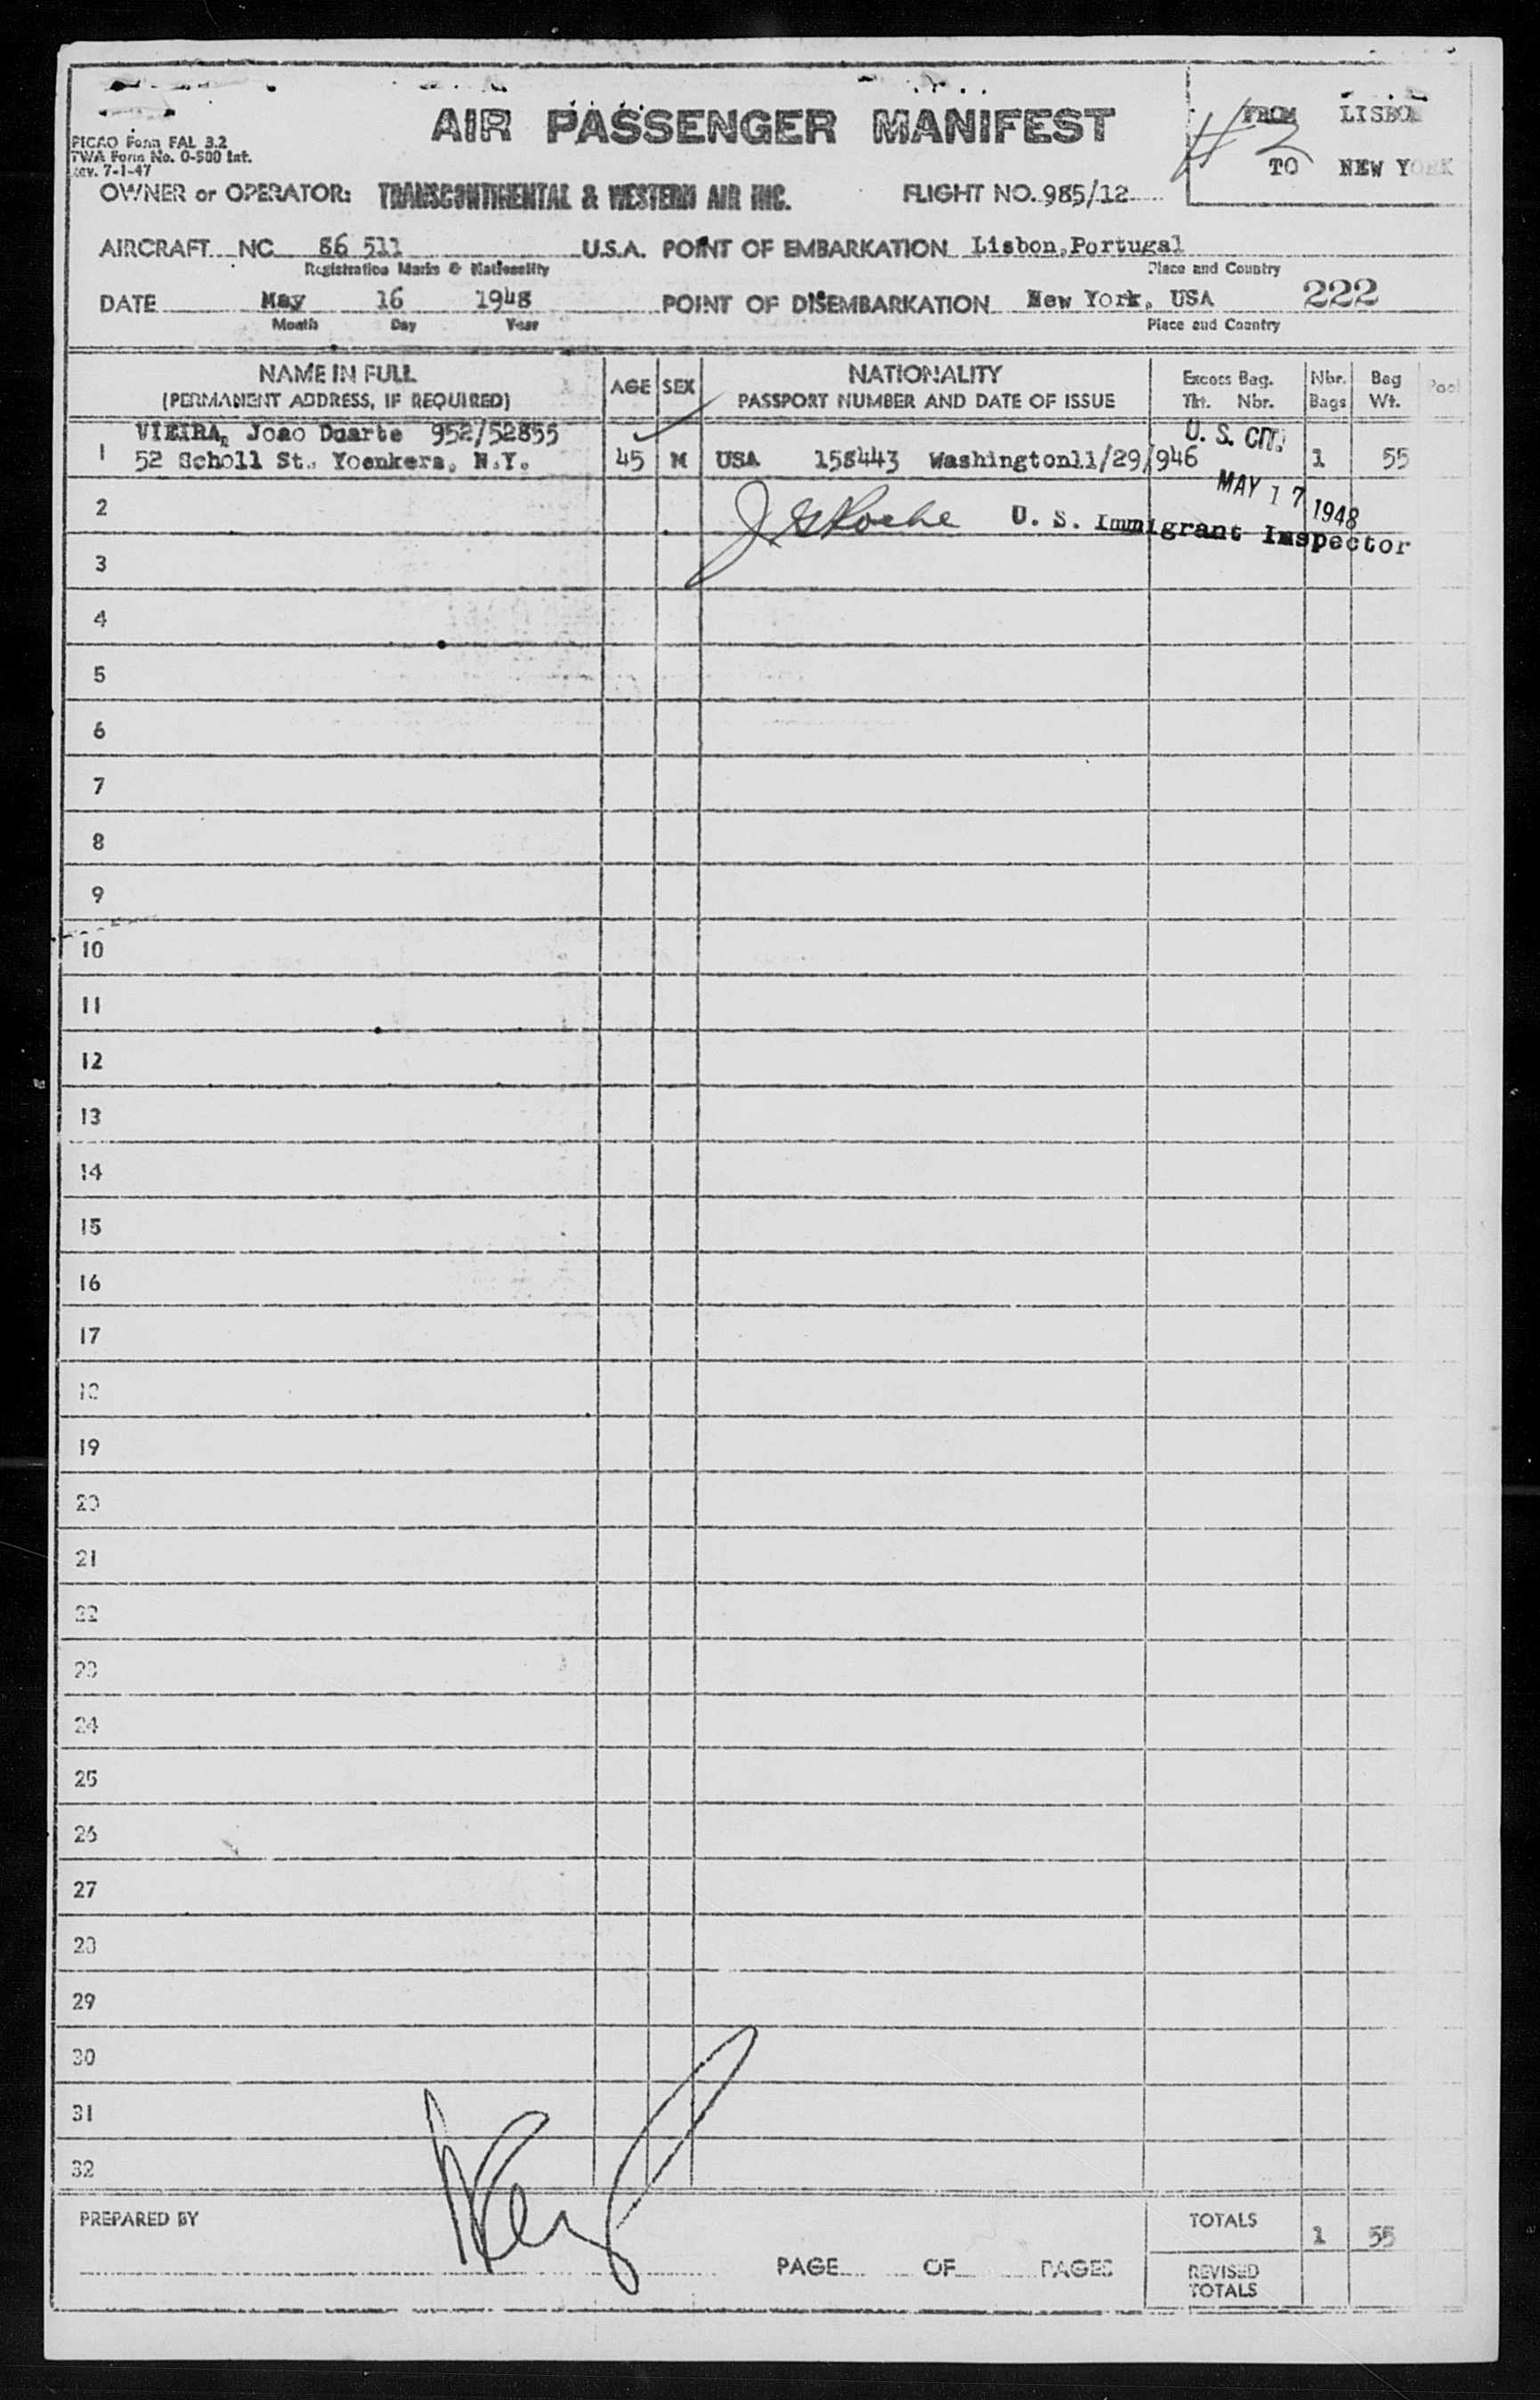 AIR PASSENGER MANIFEST
FROM LISBON
#2
TO NEW YORK
PICAO Form FAL 3.2
TWA Form No. O-500 Int.
Rev. 7-1-47
OWNER or OPERATOR: TRANSCONTINENTAL & WESTERN AIR INC. FLIGHT NO. 985/12
AIRCRAFT NC 86 511 U.S.A. POINT OF EMBARKATION Lisbon,Portugal
Registration Marks & Nationality Place and Country
DATE May 16 1948 POINT OF DISEMBARKATION New York, USA 222
Month Day Year Place and Country
NAME IN FULL AGE SEX NATIONALITY Excess Bag. Nbr. Bag Pool
(PERMANENT ADDRESS, IF REQUIRED) PASSPORT NUMBER AND DATE OF ISSUE Tkt. Nbr. Bags Wt.
VIEIRA, Joao Duarte 952/52855 U. S. CIT.
1 52 Scholl St. Yoenkers, N.Y. 45 M USA 158443 Washington11/29/946 1 55
MAY 17 1948
2 J G Roche U. S. Immigrant Inspector
3
4
5
6
7
8
9
10
11
12
13
14
15
16
17
18
19
20
21
22
23
24
25
26
27
28
29
30
31
32
PREPARED BY TOTALS 1 55
PAGE OF PAGES REVISED
TOTALS